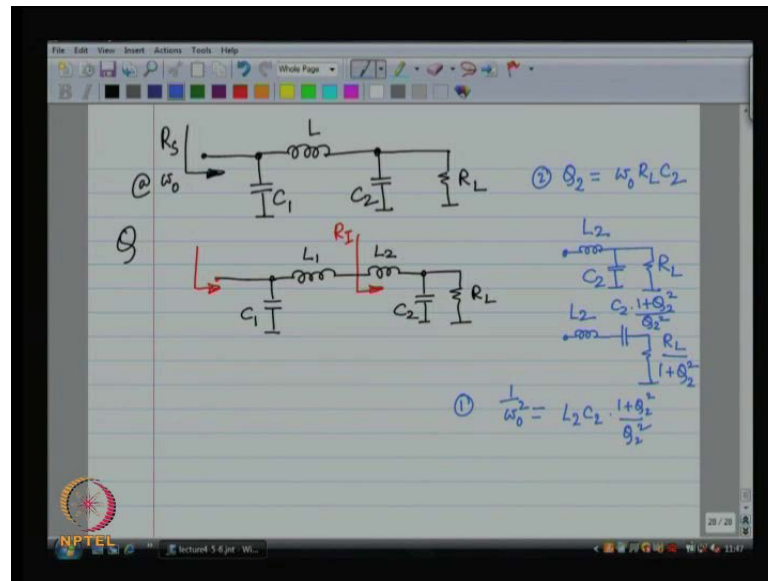 File Edit View Insert Actions Tools Help
Whole Page
B I
L
R_S
@ ω₀
C₁
C₂
R_L
② Q₂ = ω₀ R_L C₂
Q
R_I
L₁
L₂
C₁
C₂
R_L
L₂
C₂
R_L
C₂ · (1+Q₂²)/Q₂²
L₂
R_L/(1+Q₂²)
① 1/ω₀² = L₂ C₂ · (1+Q₂²)/Q₂²
28 / 28
NPTEL
lecture4-5-6.jnt - Wi...
11:47